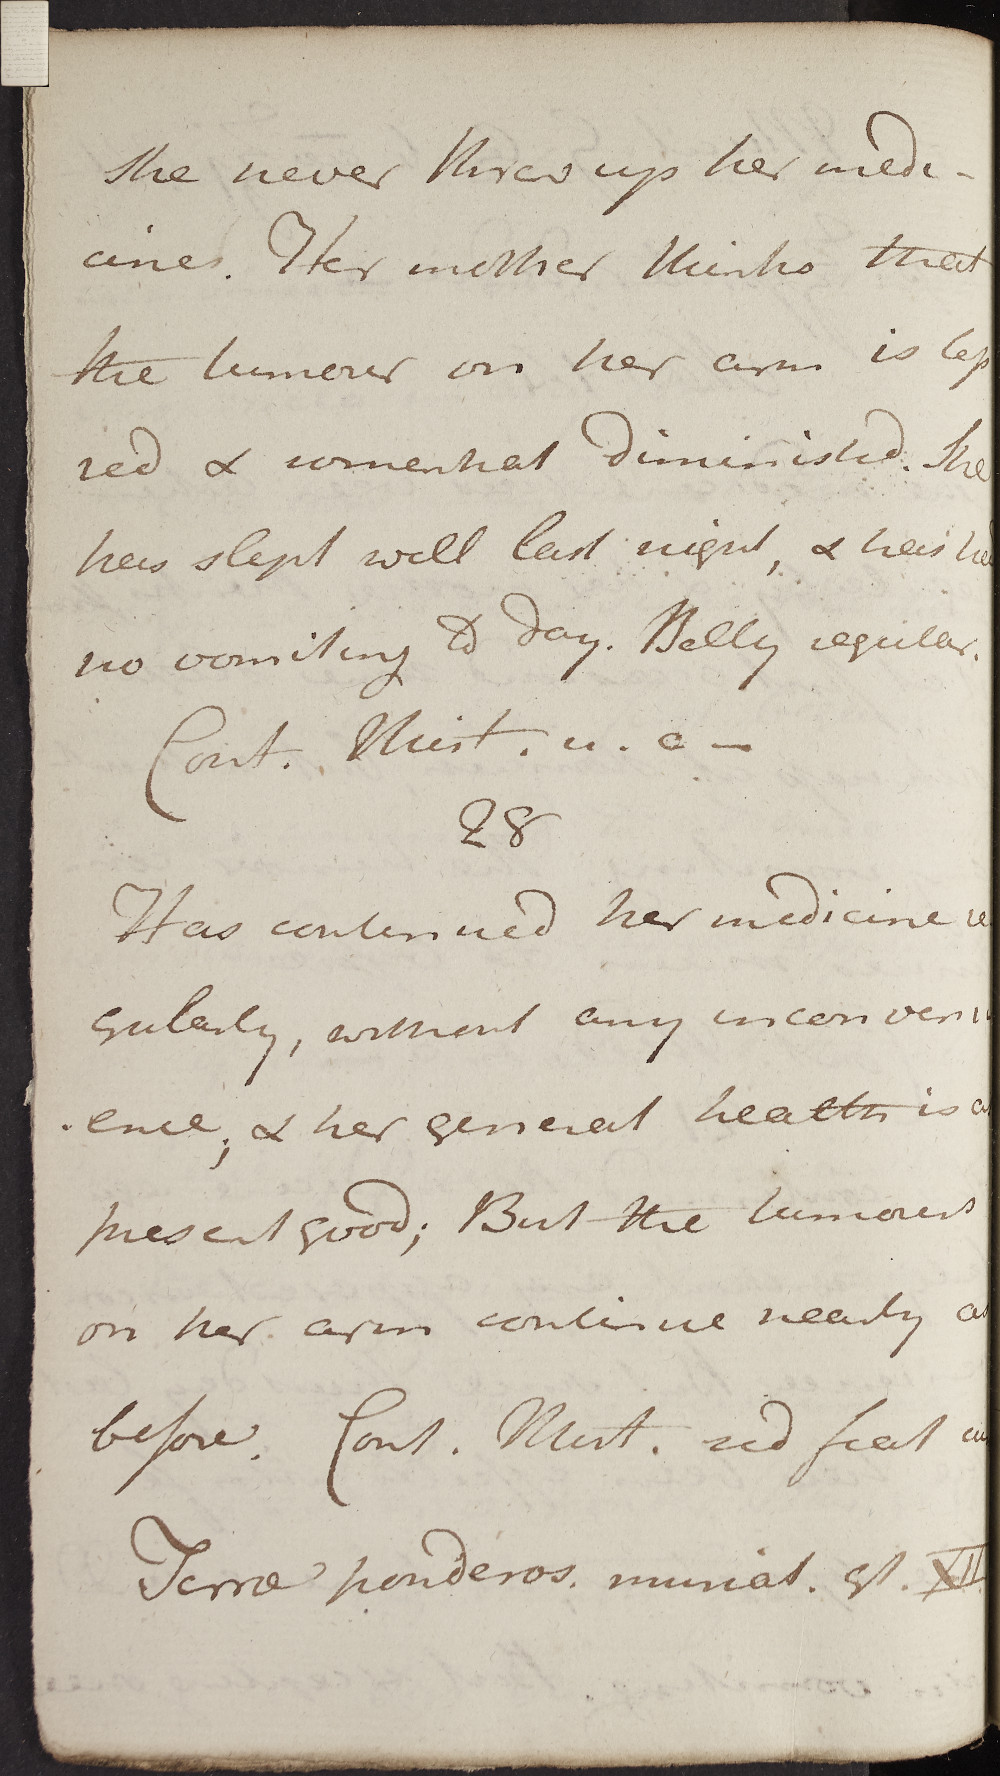 She never threw up her medi-
cines. Her mother thinks that
the tumour on her arm is less
red & somewhat diminished. She
has slept well last night, & has had
no vomiting to day. Belly regular.
Cont. Mist. u. a —
28
Has continued her medicine re
gularly, without any inconveni
ence; & her general health is at
present good; But the tumours
on her arm continue nearly as
before. Cont. Mist. sed fiat cum
Terræ ponderos. muriat. gt. XII